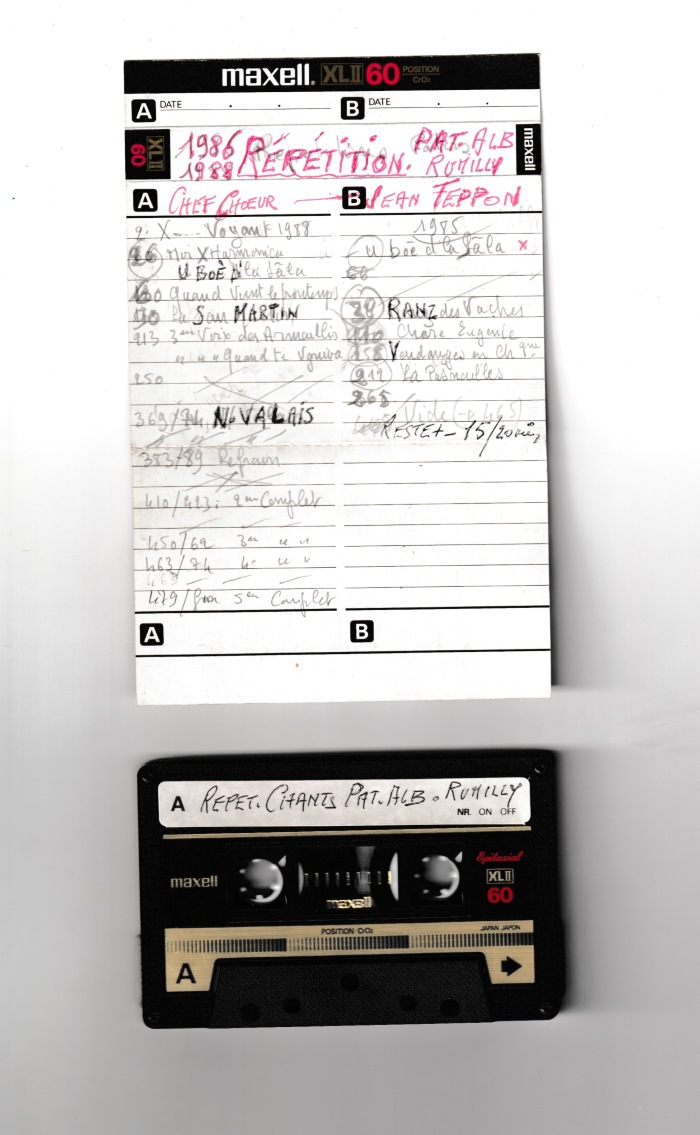 maxell. XLII 60 POSITION CrO2
A DATE . . B DATE . .
XLII 60
1986 RÉPÉTITION. PAT. ALB
1988 RUMILLY
maxell
A CHEF CHŒUR B JEAN FEPPON
9. X Voyant 1988
26 X Harmonica
U BOÈ d'la Sâla
Quand Vient le printemps
90 La San MARTIN
213 3em Voix des Armaillis
" " " Quand te
250
369/74 N. VALAIS
383/89 Refrain
410/423: 2em Complet
450/62 3em " "
463/74 4e " "
468
479/ 5em Complet
1985
U boè d'la Sâla x
RANZ des Vaches
Chère Eugénie
Vendanges en
212 La
265
Vide (-> 465)
RESTE + - 15/20 min,
A B
A REPET. CHANTS PAT. ALB. RUMILLY
NR. ON OFF
maxell
maxell
Epitaxial
XLII
60
POSITION·CrO2
JAPAN JAPON
A